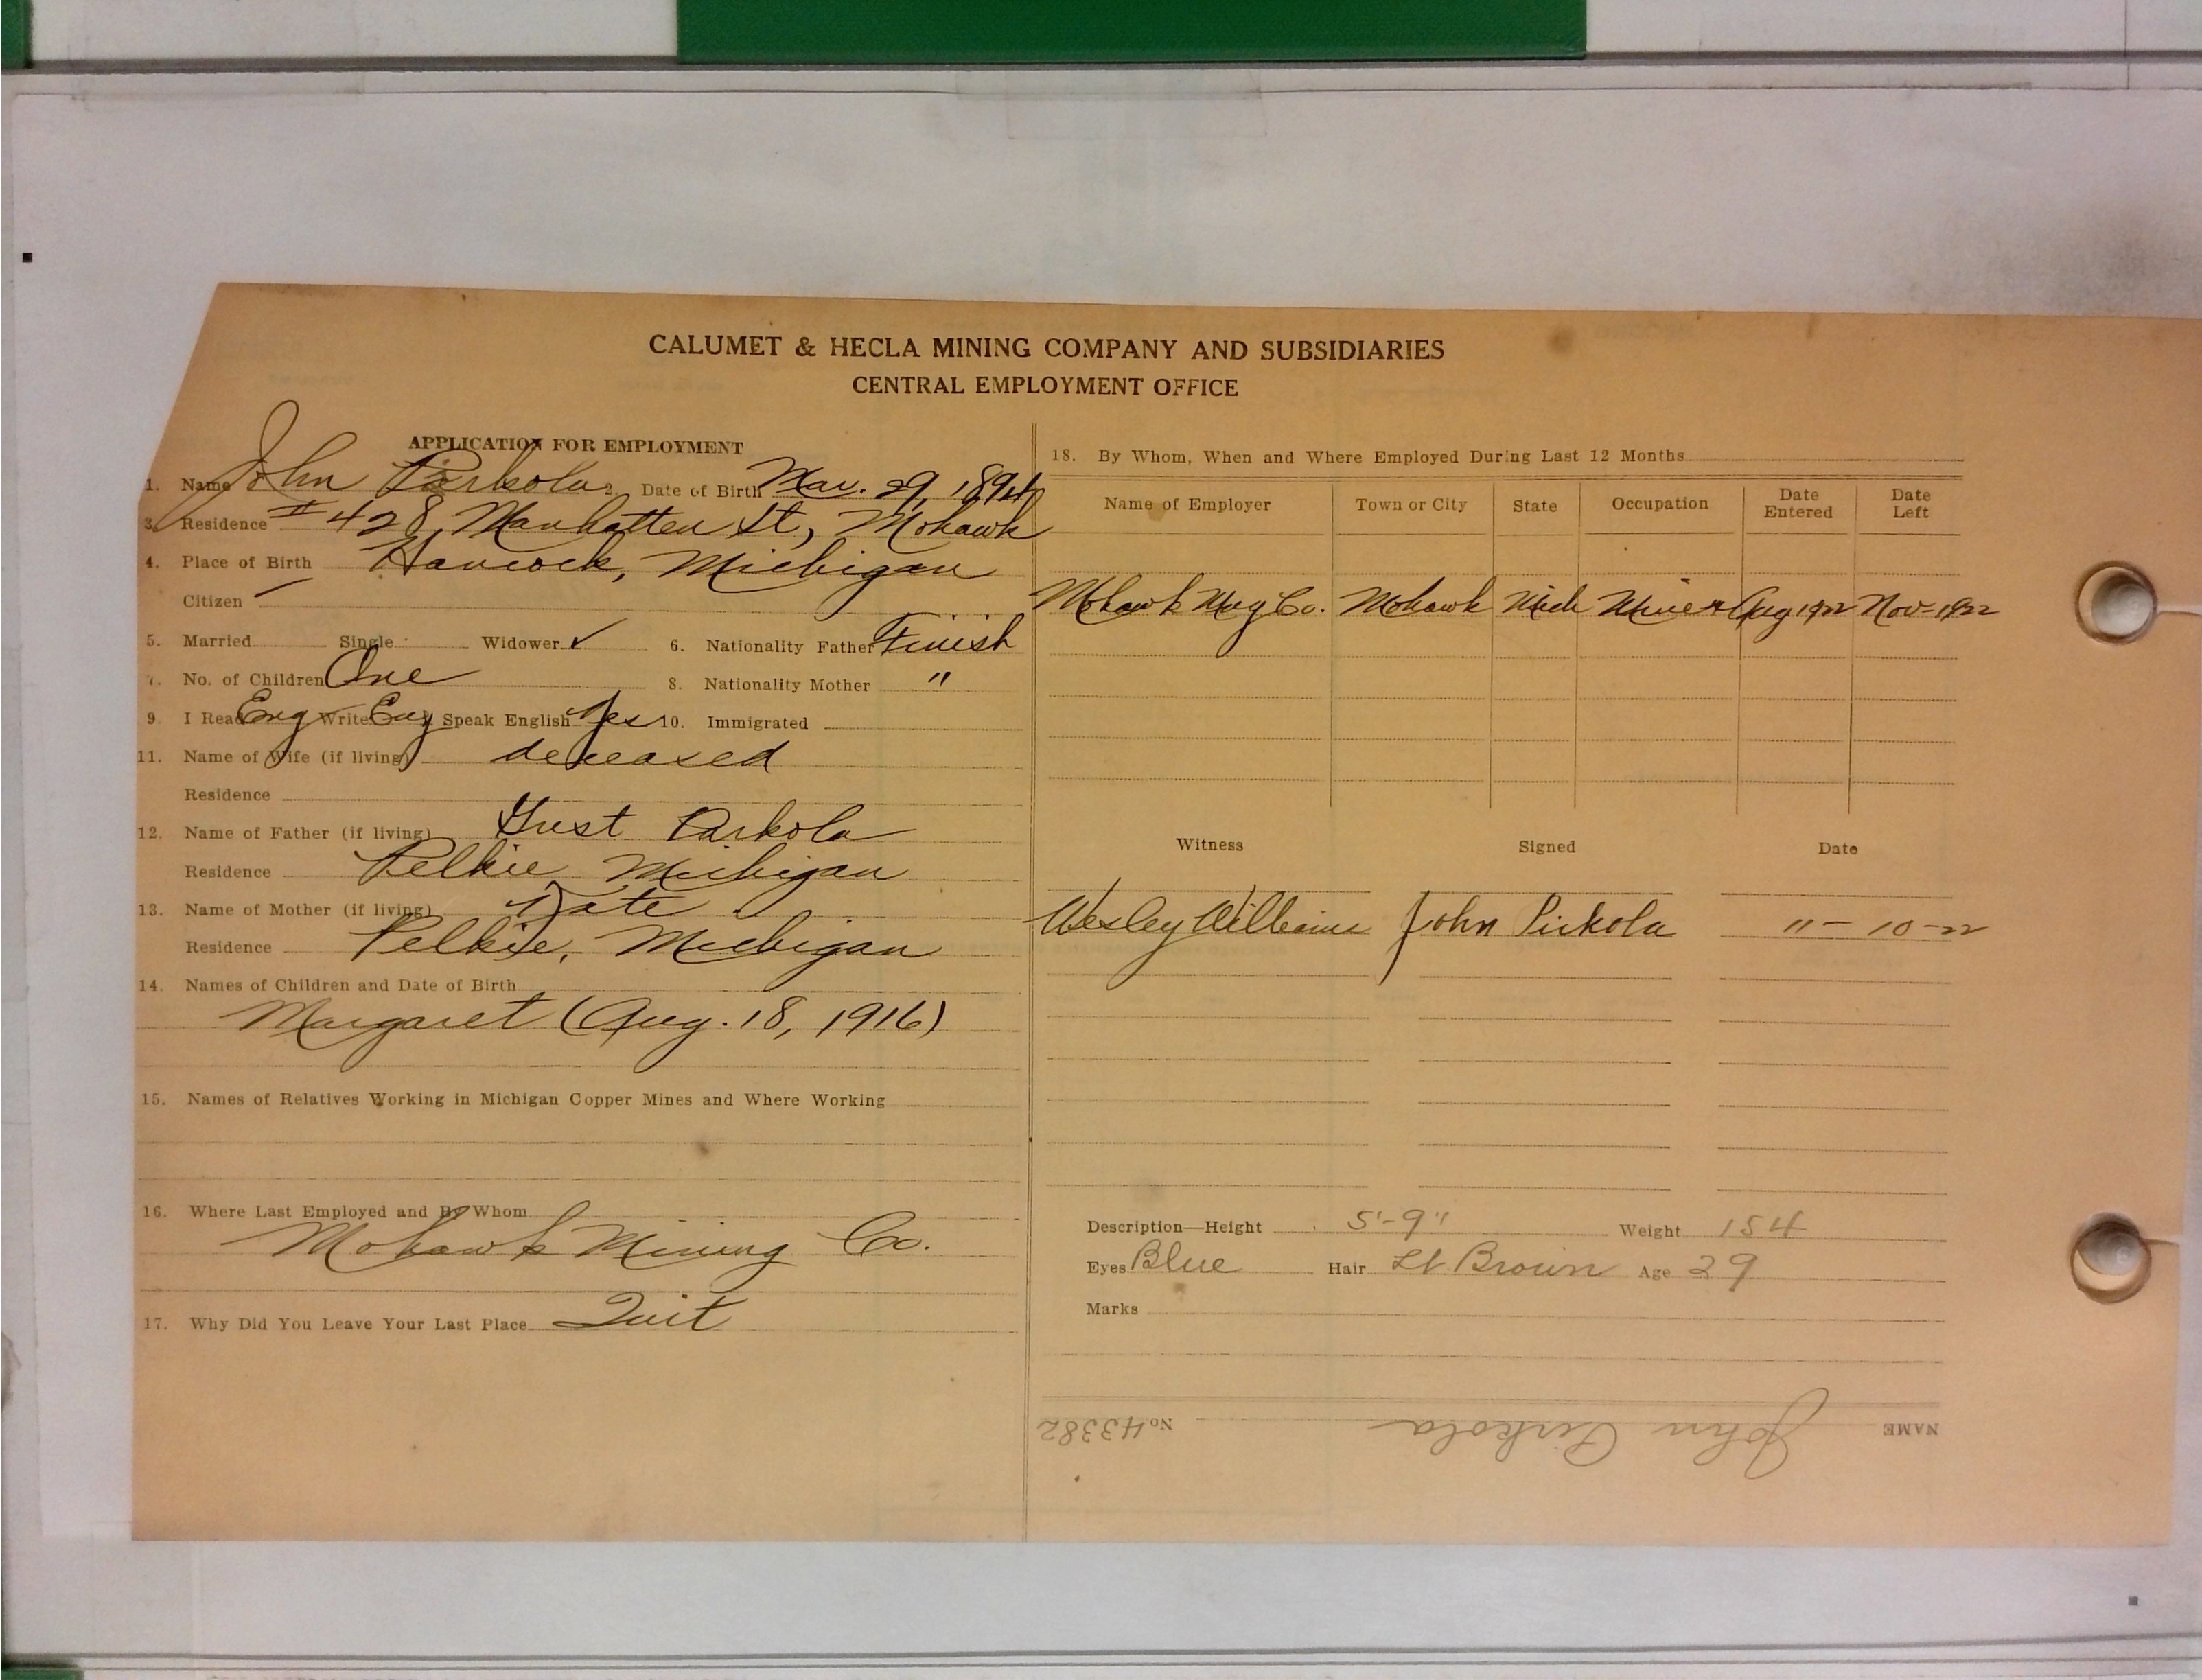 CALUMET & HECLA MINING COMPANY AND SUBSIDIARIES
CENTRAL EMPLOYMENT OFFICE
APPLICATION FOR EMPLOYMENT
1. Name John Pirkola Date of Birth Mar. 29, 1894
3. Residence # 428, Manhatten St., Mohawk
4. Place of Birth Hancock, Michigan
Citizen
5. Married Single Widower ✓ 6. Nationality Father Finish
7. No. of Children One 8. Nationality Mother "
9. I Read Eng Write Eng Speak English Yes 10. Immigrated
11. Name of Wife (if living) deceased
Residence
12. Name of Father (if living) Gust Pirkola
Residence Pelkie, Michigan
13. Name of Mother (if living) Kate
Residence Pelkie, Michigan
14. Names of Children and Date of Birth
Margaret (Aug. 18, 1916)
15. Names of Relatives Working in Michigan Copper Mines and Where Working
16. Where Last Employed and By Whom
Mohawk Mining Co.
17. Why Did You Leave Your Last Place Quit
18. By Whom, When and Where Employed During Last 12 Months
Name of Employer Town or City State Occupation Date Entered Date Left
Mohawk Mng Co. Mohawk Mich Miner Aug 1922 Nov-1922
Witness Signed Date
Wesley Williams John Pirkola 11-10-22
Description—Height 5'-9" Weight 154
Eyes Blue Hair Lt Brown Age 29
Marks
NAME John Pirkola No 43382